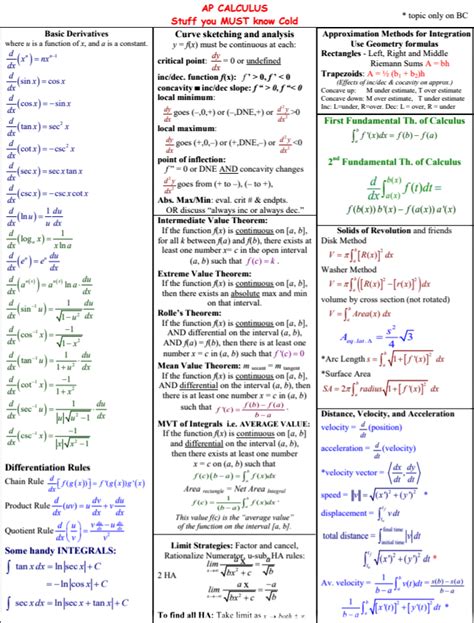 AP CALCULUS
Stuff you MUST know Cold
* topic only on BC
Basic Derivatives
where u is a function of x, and a is a constant.
d/dx (xⁿ) = nxⁿ⁻¹
d/dx (sin x) = cos x
d/dx (cos x) = −sin x
d/dx (tan x) = sec² x
d/dx (cot x) = −csc² x
d/dx (sec x) = sec x tan x
d/dx (csc x) = −csc x cot x
d/dx (ln u) = 1/u du/dx
d/dx (logₐ x) = 1/(x ln a)
d/dx (eᵘ) = eᵘ du/dx
d/dx (aᵘ⁽ˣ⁾) = aᵘ⁽ˣ⁾ ln a · du/dx
d/dx (sin⁻¹ u) = 1/√(1−u²) du/dx
d/dx (cos⁻¹ x) = −1/√(1−x²)
d/dx (tan⁻¹ u) = 1/(1+u²) du/dx
d/dx (cot⁻¹ x) = −1/(1+x²)
d/dx (sec⁻¹ u) = 1/(|u|√(u²−1)) du/dx
d/dx (csc⁻¹ x) = −1/(|x|√(x²−1))
Differentiation Rules
Chain Rule d/dx [f(g(x))] = f '(g(x))g'(x)
Product Rule d/dx (uv) = u dv/dx + v du/dx
Quotient Rule
Some handy INTEGRALS:
∫ tan x dx = ln|sec x| + C
= −ln|cos x| + C
∫ sec x dx = ln|sec x + tan x| + C
Curve sketching and analysis
y = f(x) must be continuous at each:
critical point: dy/dx = 0 or undefined
inc/dec. function f(x): f ' > 0, f ' < 0
concavity ≡ inc/dec slope: f " > 0, f " < 0
local minimum:
dy/dx goes (−,0,+) or (−,DNE,+) or d²y/dx² >0
local maximum:
dy/dx goes (+,0,−) or (+,DNE,−) or d²y/dx² <0
point of inflection:
f '' = 0 or DNE AND concavity changes
d²y/dx² goes from (+ to −), (− to +),
Abs. Max/Min: eval. crit # & endpts.
OR discuss "always inc or always dec."
Intermediate Value Theorem:
If the function f(x) is continuous on [a, b],
for all k between f(a) and f(b), there exists at
least one number x= c in the open interval
(a, b) such that f(c) = k .
Extreme Value Theorem:
If the function f(x) is continuous on [a, b],
then there exists an absolute max and min
on that interval.
Rolle's Theorem:
If the function f(x) is continuous on [a, b],
AND differential on the interval (a, b),
AND f(a) = f(b), then there is at least one
number x = c in (a, b) such that f '(c) = 0
Mean Value Theorem: m secant = m tangent
If the function f(x) is continuous on [a, b],
AND differential on the interval (a, b), then
there is at least one number x = c in (a, b)
such that f '(c) = (f(b) − f(a))/(b − a)
MVT of Integrals i.e. AVERAGE VALUE:
If the function f(x) is continuous on [a, b]
and differential on the interval (a, b),
then there exists at least one number
x = c on (a, b) such that
f(c)(b − a) = ∫ₐᵇ f(x)dx
Area rectangle = Net Area Integral
f(c) = 1/(b−a) ∫ₐᵇ f(x)dx
This value f(c) is the "average value"
of the function on the interval [a, b].
Limit Strategies: Factor and cancel,
Rationalize Numerator, u-sub HA rules:
2 HA
To find all HA: Take limit as
Approximation Methods for Integration
Use Geometry formulas
Rectangles - Left, Right and Middle
Riemann Sums A = bh
Trapezoids: A = ½ (b₁ + b₂)h
(Effects of inc/dec & cocavity on approx.)
Concave up: M under estimate, T over estimate
Concave down: M over estimate, T under estimate
Inc: L=under, R=over. Dec: L = over, R = under
First Fundamental Th. of Calculus
∫ₐᵇ f '(x)dx = f(b) − f(a)
2nd Fundamental Th. of Calculus
d/dx ∫ₐ₍ₓ₎ᵇ⁽ˣ⁾ f(t)dt =
f(b(x)) b'(x) − f(a(x)) a'(x)
Solids of Revolution and friends
Disk Method
V = π∫ₐᵇ [R(x)]² dx
Washer Method
V = π∫ₐᵇ ([R(x)]² − [r(x)]²) dx
volume by cross section (not rotated)
V = ∫ₐᵇ Area(x) dx
A eq. lat. Δ = s²/4 √3
*Arc Length s = ∫ₐᵇ √(1+[f '(x)]²) dx
*Surface Area
SA = 2π∫ₐᵇ radius√(1+[f '(x)]²) dx
Distance, Velocity, and Acceleration
velocity = d/dt (position)
acceleration = d/dt (velocity)
*velocity vector = ⟨dx/dt, dy/dt⟩
speed = |v| = √((x')² + (y')²) *
displacement = ∫ v dt
total distance = ∫ initial time final time |v| dt
∫ √((x')² + (y')²) dt *
Av. velocity = 1/(b−a) ∫ₐᵇ v(t)dt = (s(b) − s(a))/(b−a)
1/(b−a) ∫ₐᵇ √([x'(t)]² + [y'(t)]²) dt *